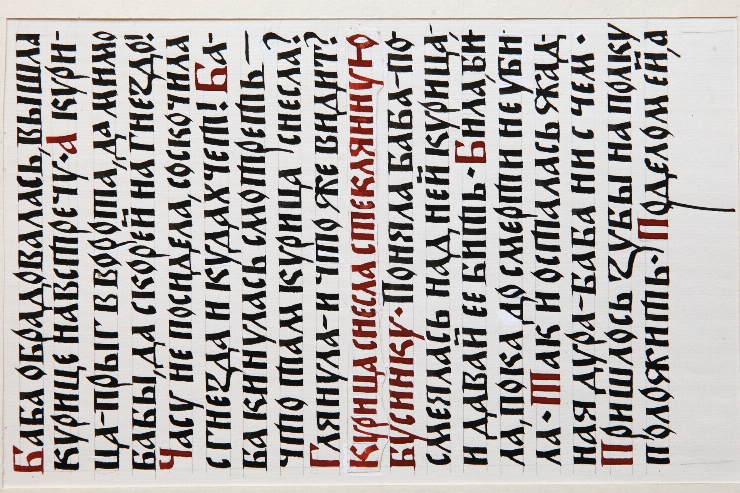 Баба обрадовалась, вышла
курице навстречу. а кури-
ца-прыг в ворота, да мимо
бабы, да скорей на гнездо!
Часу не посидела, соскочила
с гнезда и кудахчет! Ба-
ба кинулась смотреть—
что там курица снесла?
Глянула-и что же видит?
Курица снесла стеклянную
бусинку. Поняла баба-по
смеялась над ней курица,
и давай ее бить. Била, би
ла, пока до смерти не уби-
ла. Так и осталась жад-
ная дура-баба ни с чем.
Пришлось зубы на полку
положить. Поделом ей,а